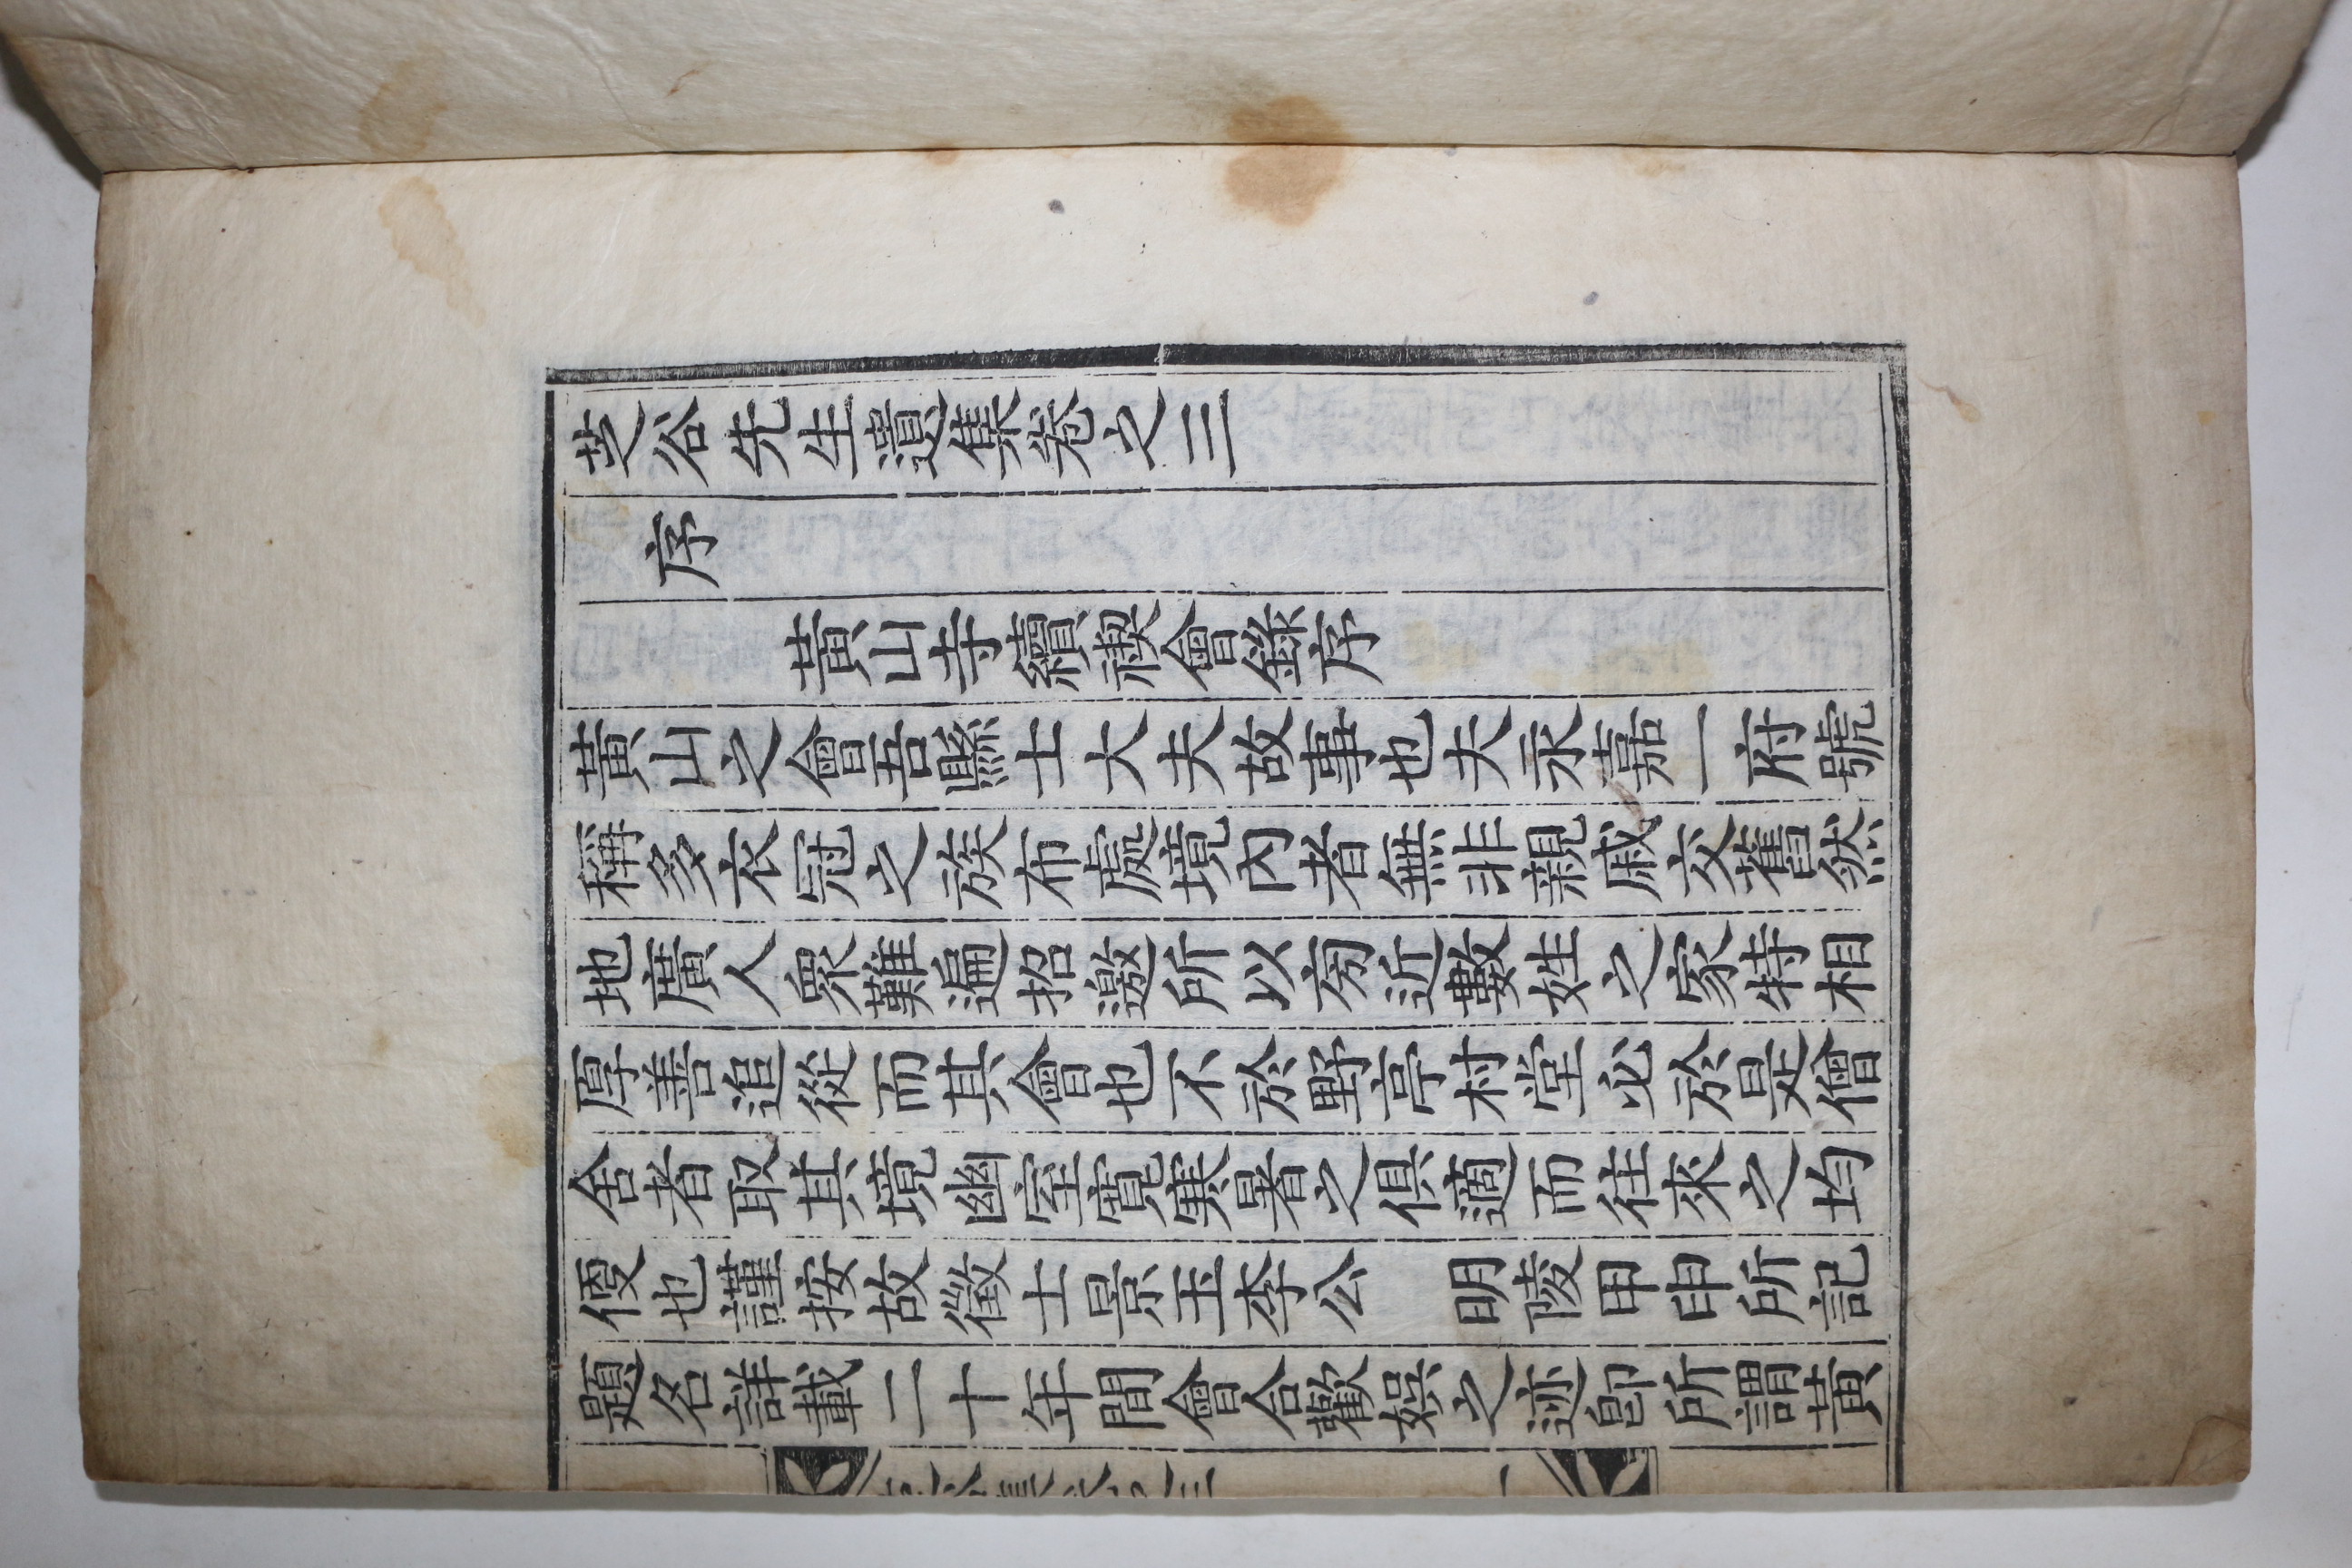 芝谷先生遺集卷之三
序
黃山寺續禊會錄序
黃山之會吾縣士大夫故事也夫永嘉一府號
稱多衣冠之族布處境內者無非親戚交舊然
地廣人衆難遍招邀所以旁近數姓之家特相
厚善追從而其會也不於野亭村堂必於是僧
舍者取其境幽室寬寒暑之俱適而往來之均
便也謹按故徵士景玉李公　明陵甲申所記
題名詳載二十年間會合歡娛之迹卽所謂黃